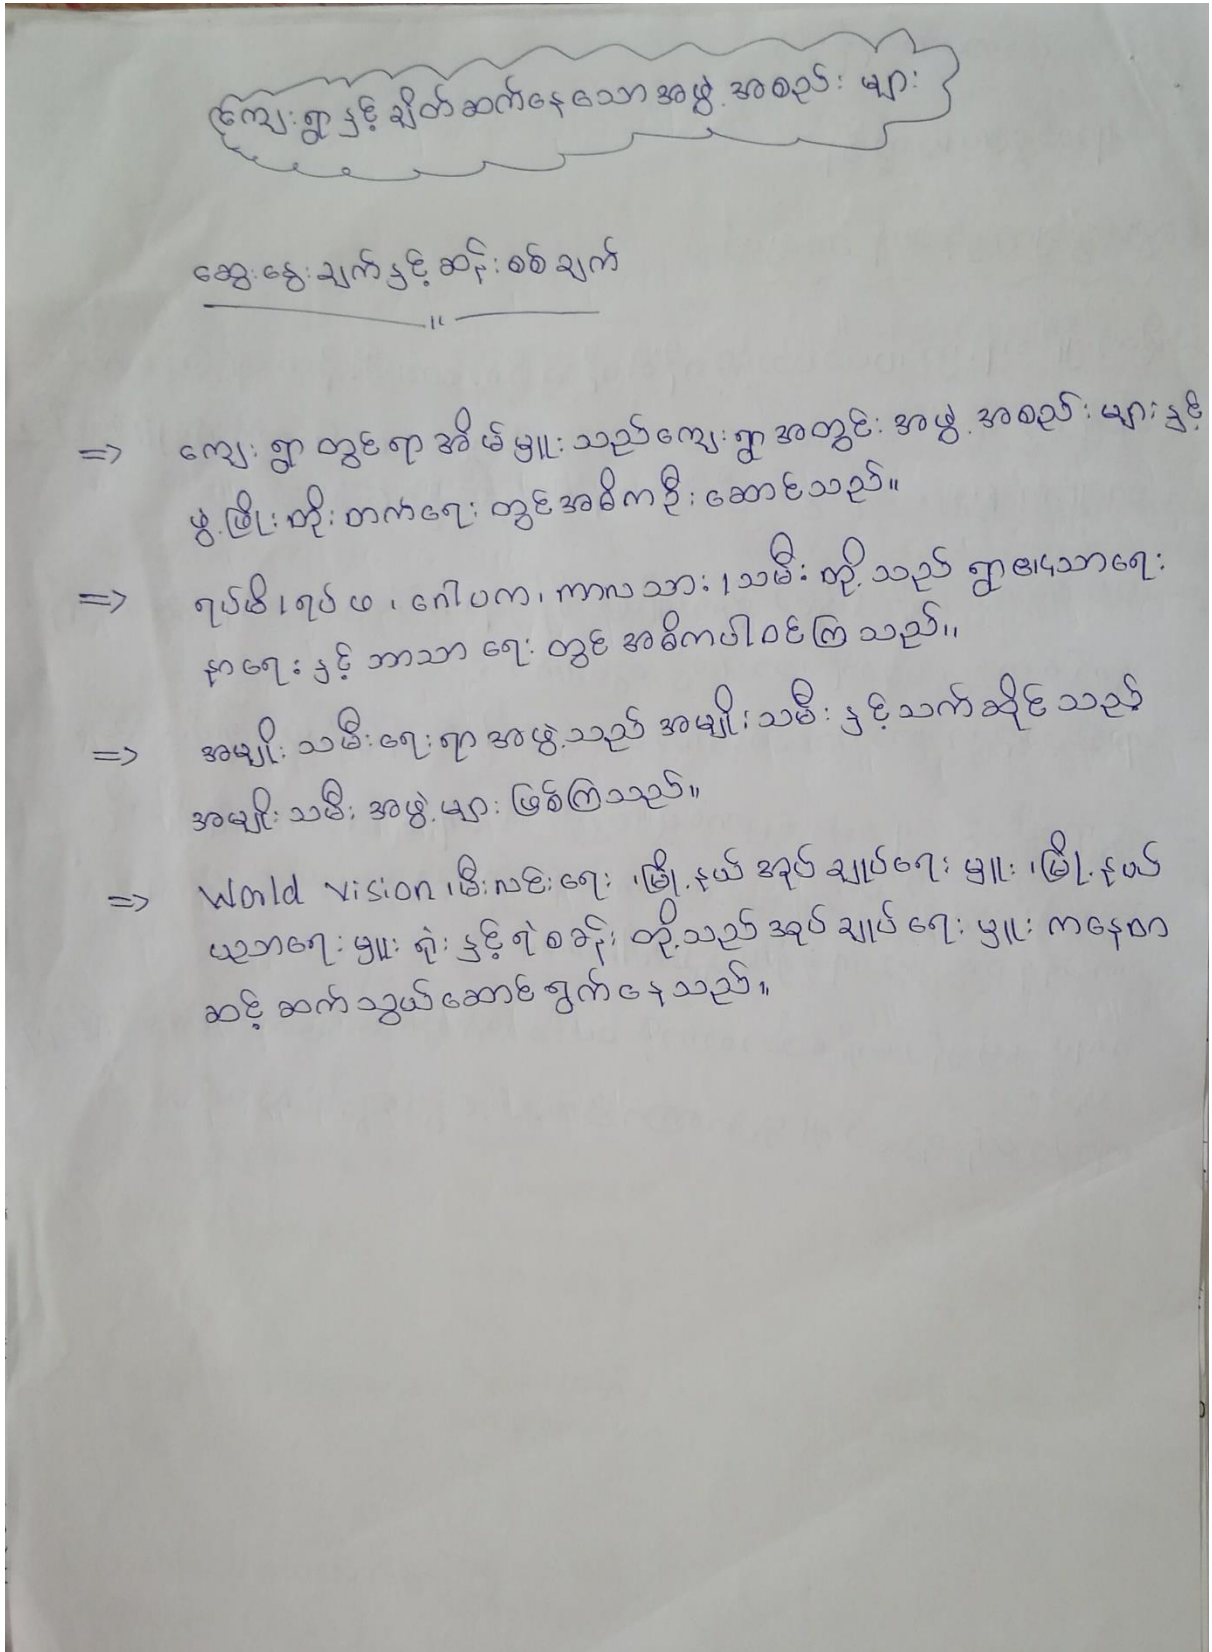 ကျေးရွာနှင့် ချိတ်ဆက်နေသောအဖွဲ့ အစည်းများ
ဆွေးနွေးချက်နှင့် ဆန်းစစ်ချက်
=> ကျေးရွာတွင်ရာအိမ်မှူးသည်ကျေးရွာအတွင်းအဖွဲ့ အစည်းများနှင့်
ဖွံ့ဖြိုးတိုးတက်ရေးတွင်အဓိကဦးဆောင်သည်။
=> ရပ်မိ၊ရပ်ဖ၊ဂေါပက၊ကာလသား၊သမီးတို့သည် ရွာ၏သာရေး
နာရေးနှင့် ဘာသာရေးတွင် အဓိကပါဝင်ကြသည်။
=> အမျိုးသမီးရေးရာအဖွဲ့သည် အမျိုးသမီးနှင့်သက်ဆိုင်သည့်
အမျိုးသမီးအဖွဲ့များဖြစ်ကြသည်။
=> World Vision၊မီးလင်းရေး၊မြို့နယ်အုပ်ချုပ်ရေးမှူး၊မြို့နယ်
ပညာရေးမှူးရုံးနှင့်ရဲစခန်းတို့သည်အုပ်ချုပ်ရေးမှူးကနေတ
ဆင့်ဆက်သွယ်ဆောင်ရွက်နေသည်။